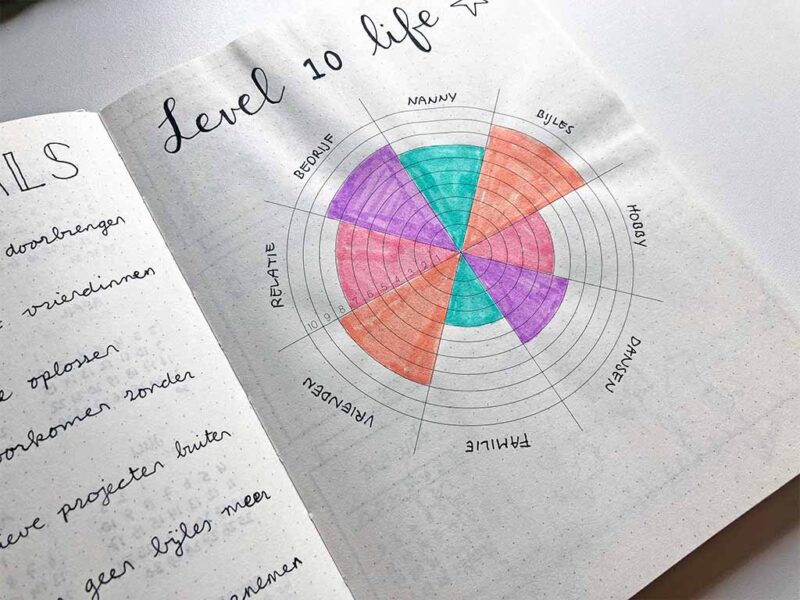 ALS
doorbrengen
vriendinnen
oplossen
oorkomen zonder
ieve projecten buiten
geen bijles meer
enemen
Level 10 life
NANNY
BIJLES
HOBBY
DANSEN
FAMILIE
VRIENDEN
RELATIE
BEDRIJF
10 9 8 7 6 5 4 3 2